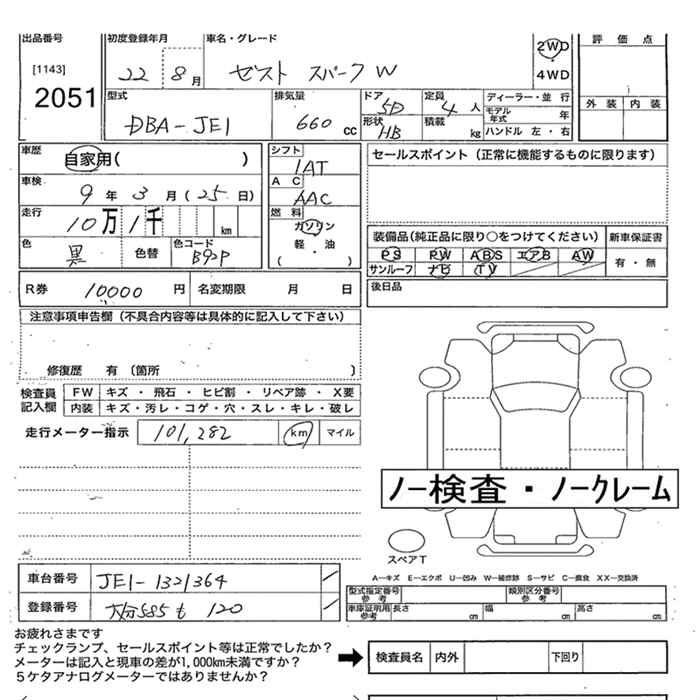 出品番号 初度登録年月 車名・グレード 評価点
[1143] 22 8月 ゼスト スパーク W 2WD
2051 4WD
外装 内装
型式 排気量 ドア 5D 定員 4人 ディーラー・並行
DBA-JE1 660cc 形状 HB 積載 kg モデル年式 年
ハンドル 左・右
車歴 自家用( ) シフト セールスポイント（正常に機能するものに限ります）
1AT
車検 9年 3月(25日) AC
AAC
走行 10万 1千 km 燃料
ガソリン
装備品(純正品に限り○をつけてください) 新車保証書
色 黒 色替 色コード 軽・油 PS PW ABS エアB AW 有・無
B92P ( ) サンルーフ ナビ TV
R券 10000円 名変期限 月 日 後日品
注意事項申告欄（不具合内容等は具体的に記入して下さい）
修復歴 有（箇所 ）
検査員記入欄 FW キズ・飛石・ヒビ割・リペア跡・X要
内装 キズ・汚レ・コゲ・穴・スレ・キレ・破レ
走行メーター指示 101,282 km マイル
ノー検査・ノークレーム
スペアT
A－キズ E－エクボ U－凹み W－補修跡 S－サビ C－腐食 XX－交換済
車台番号 JE1-1321364 型式指定番号参考 類別区分番号参考
登録番号 大分585 も 120 車庫証明用参考 長さ cm 幅 cm 高さ cm
お疲れさまです
チェックランプ、セールスポイント等は正常でしたか？
メーターは記入と現車の差が1,000km未満ですか？ 検査員名 内外 下回り
５ケタアナログメーターではありませんか？